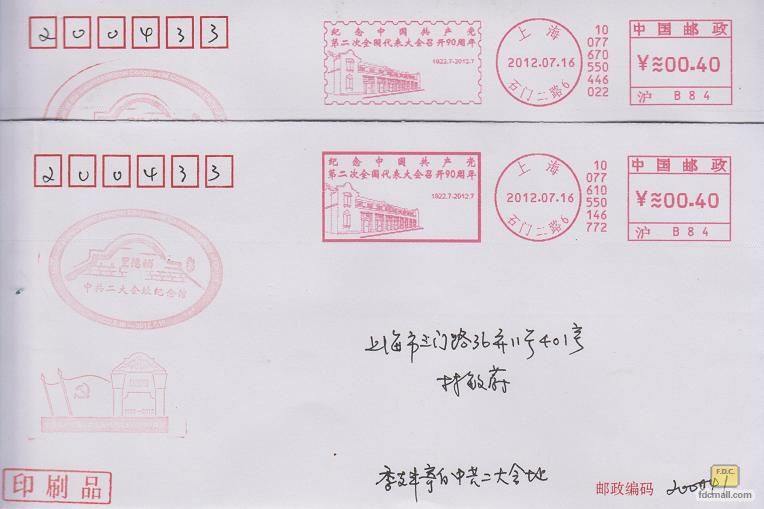 200433
纪念中国共产党
第二次全国代表大会召开90周年
1922.7-2012.7
上海
2012.07.16
石门二路6
10
077
670
550
446
022
中国邮政
¥≈00.40
沪 B84
200433
纪念中国共产党
第二次全国代表大会召开90周年
1922.7-2012.7
上海
2012.07.16
石门二路6
10
077
610
550
146
772
中国邮政
¥≈00.40
沪 B84
中共二大会址纪念馆
上海市三门路36弄11号401号
林敏蔚
寄自中共二大会址
印刷品
邮政编码 200041
F.D.C.
fdcmall.com